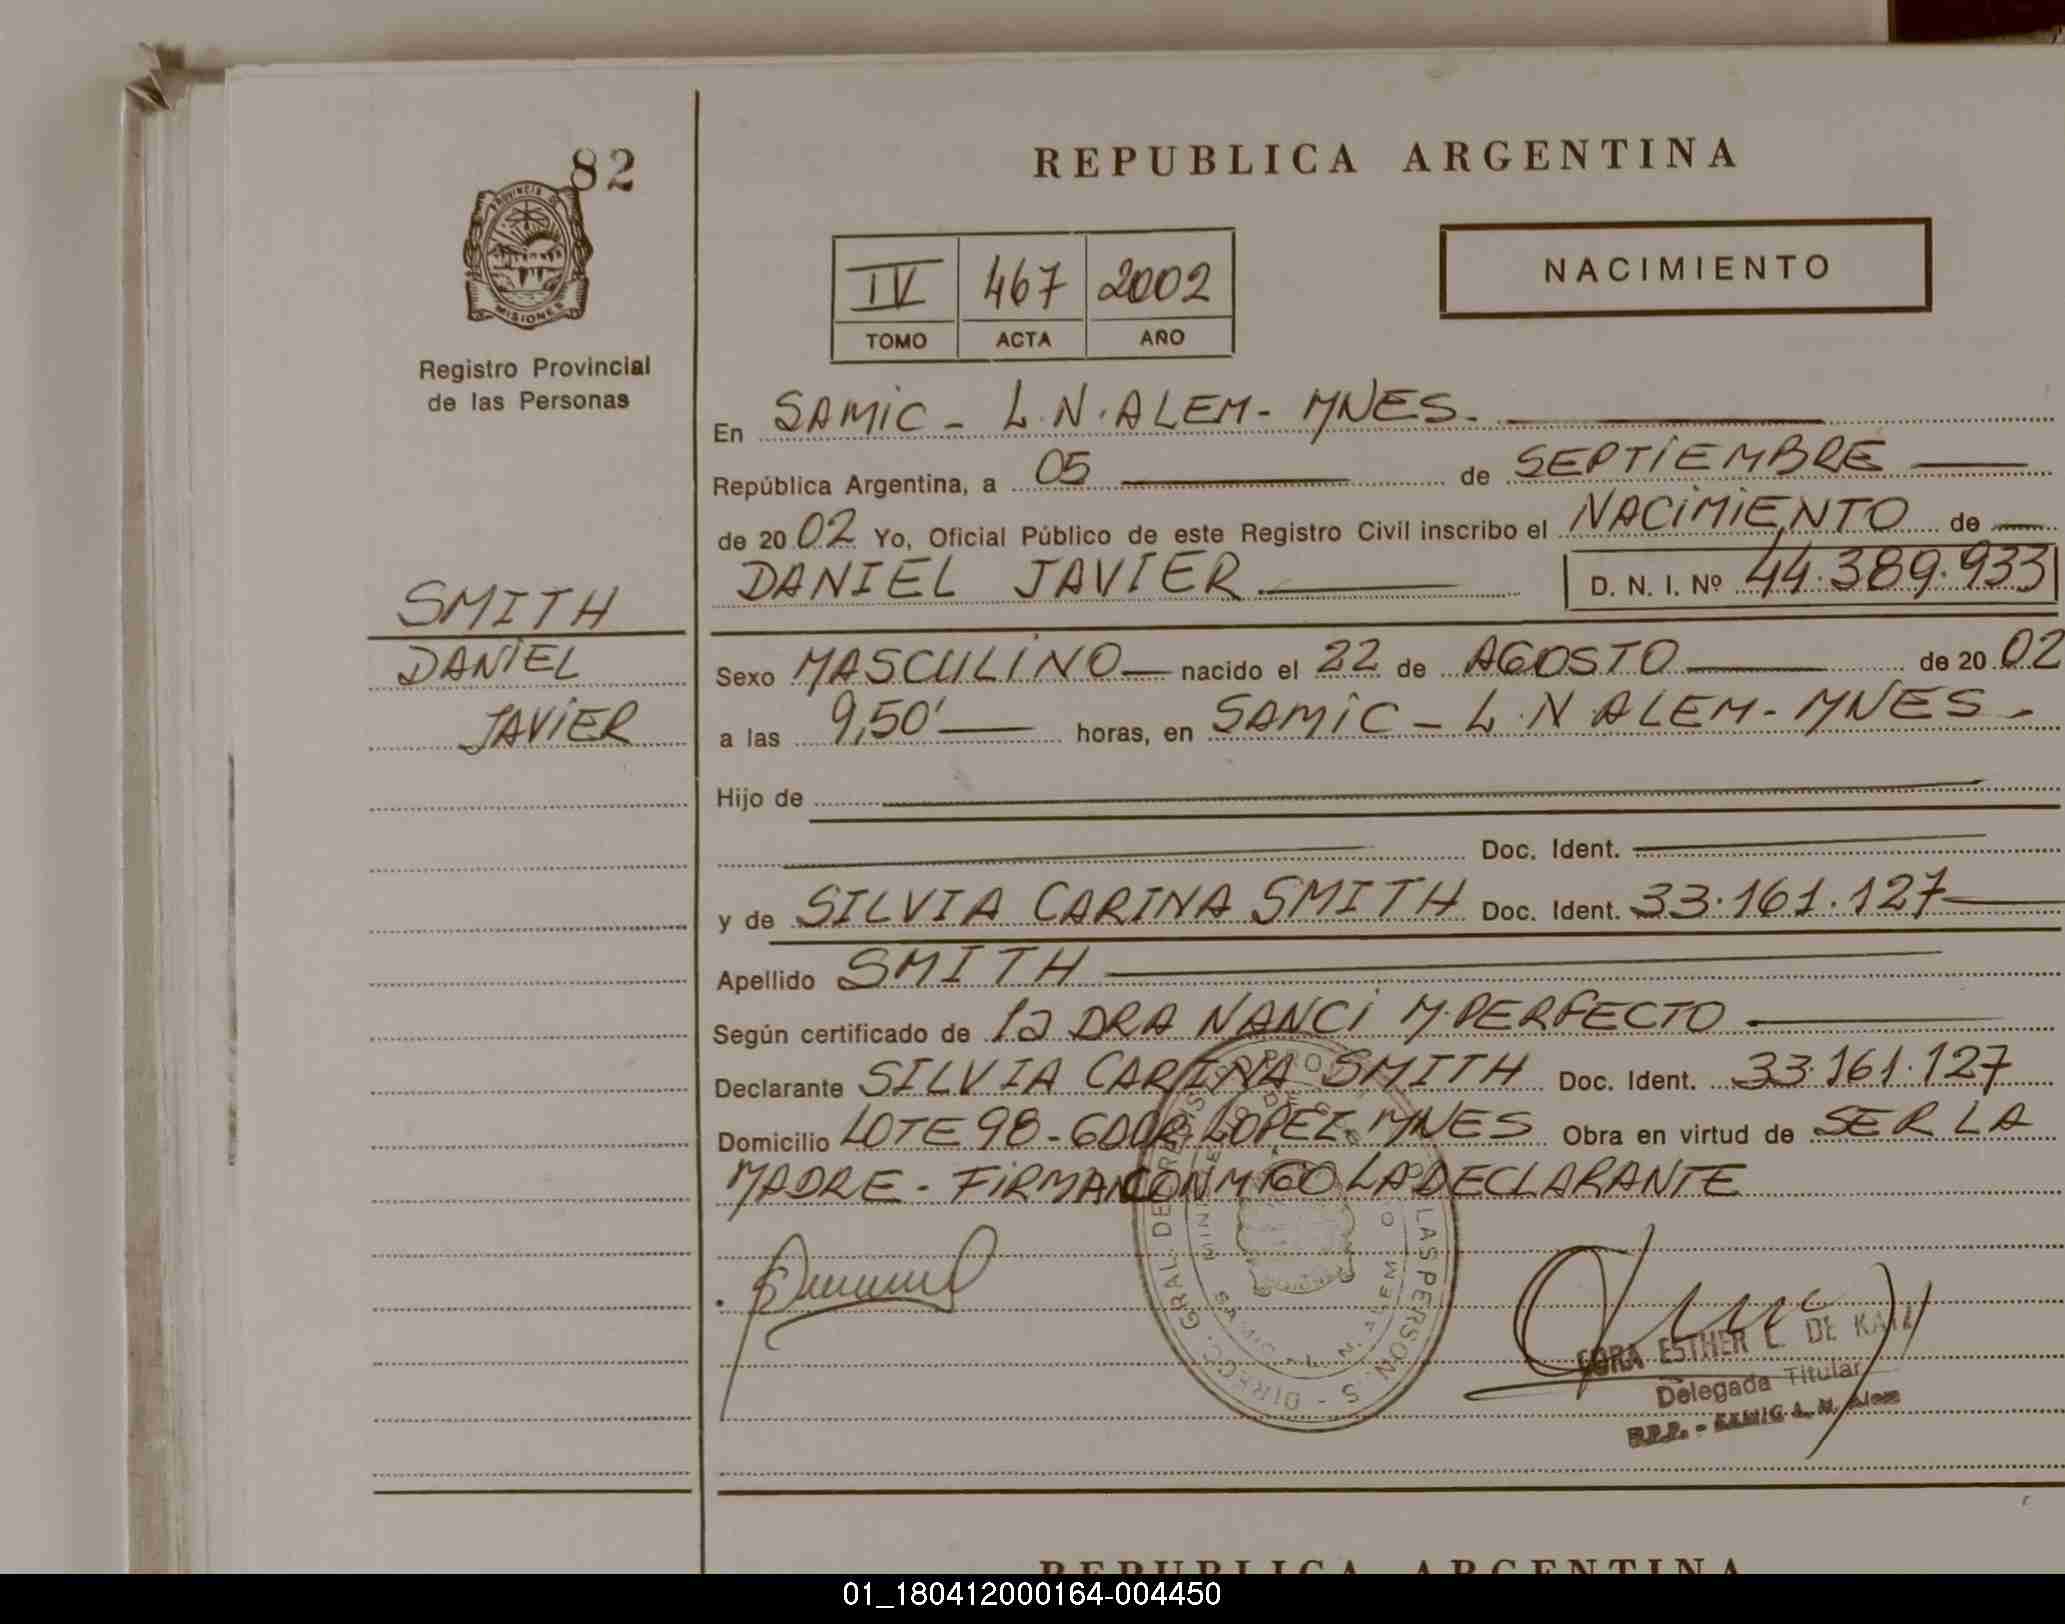 82
PROVINCIA DE
MISIONES
Registro Provincial
de las Personas
REPUBLICA ARGENTINA
IV 467 2002
TOMO ACTA AÑO
NACIMIENTO
En SAMIC - L.N.ALEM - MNES.
República Argentina, a 05 de SEPTIEMBRE
de 2002 Yo, Oficial Público de este Registro Civil inscribo el NACIMIENTO de
DANIEL JAVIER D. N. I. Nº 44.389.933
SMITH
DANIEL
JAVIER
Sexo MASCULINO nacido el 22 de AGOSTO de 2002
a las 9,50' horas, en SAMIC - L.N ALEM - MNES -
Hijo de
Doc. Ident.
y de SILVIA CARINA SMITH Doc. Ident. 33.161.127
Apellido SMITH
Según certificado de la DRA NANCI M. PERFECTO
Declarante SILVIA CARINA SMITH Doc. Ident. 33.161.127
Domicilio LOTE 98 - GDOR. LOPEZ - MNES Obra en virtud de SER LA
MADRE - FIRMA CONMIGO LA DECLARANTE
ESTHER E. DE KATZ
Delegada Titular
R.P.P. - SAMIC L. N. Alem
REPUBLICA ARGENTINA
01_180412000164-004450